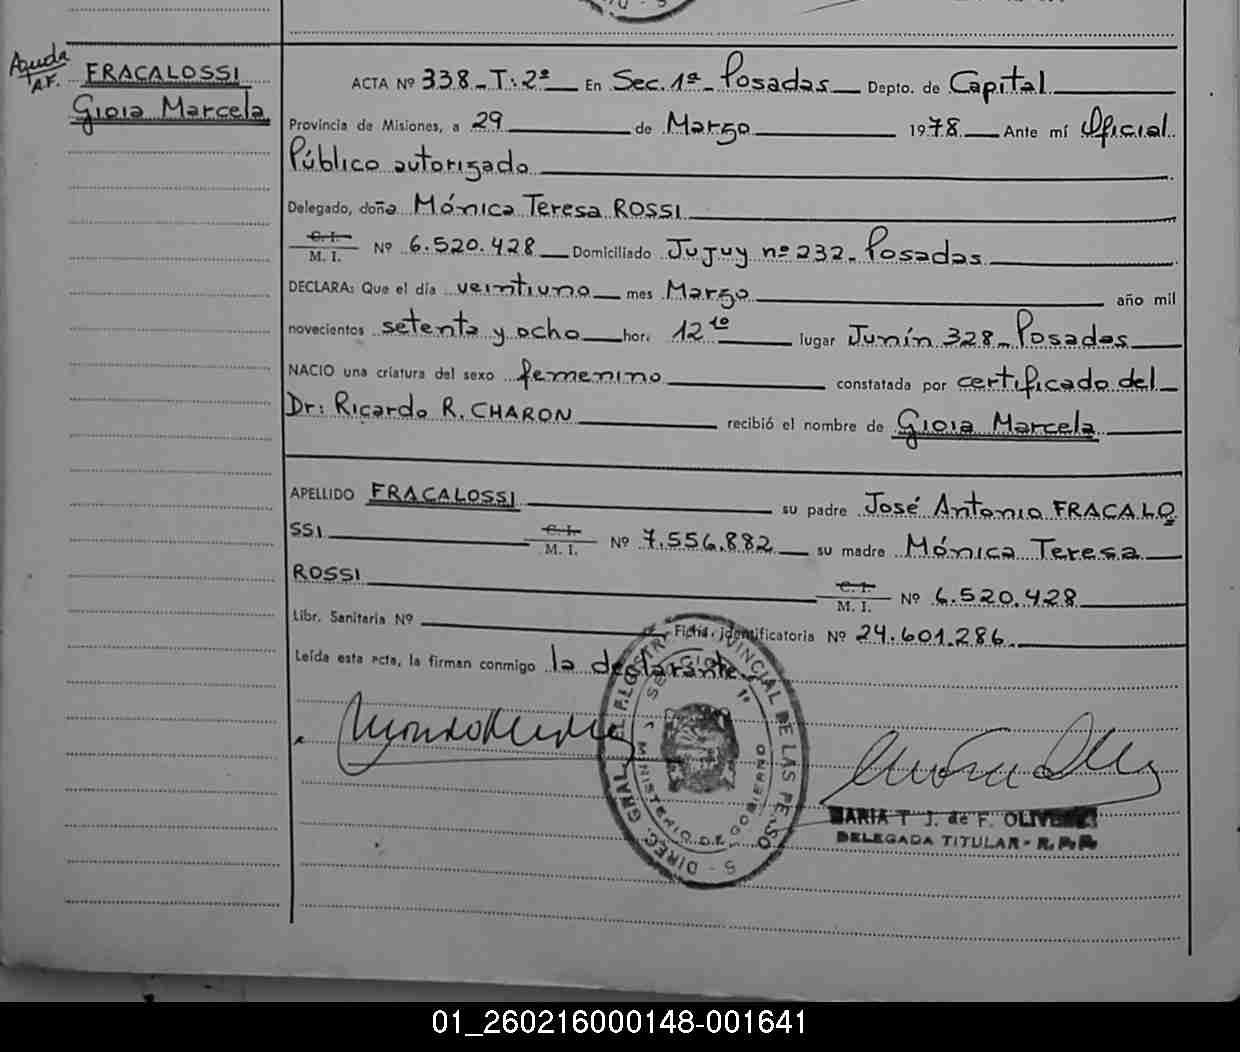 Ayuda
A.F.
FRACALOSSI
Gioia Marcela
ACTA Nº 338_T:2º En Sec. 1ª_ Posadas Depto. de Capital
Provincia de Misiones, a 29 de Marzo 1978 Ante mí Oficial
Público autorizado
Delegado, doña Mónica Teresa ROSSI
C. I. M. I. Nº 6.520.428 Domiciliado Jujuy nº 232_ Posadas
DECLARA: Que el día veintiuno mes Marzo año mil
novecientos setenta y ocho hora 12 10 lugar Junín 328_ Posadas
NACIO una criatura del sexo femenino constatada por certificado del
Dr: Ricardo R. CHARON recibió el nombre de Gioia Marcela
APELLIDO FRACALOSSI su padre José Antonio FRACALO
SSI C. I. M. I. Nº 7.556.882 su madre Mónica Teresa
ROSSI C. I. M. I. Nº 6.520.428
Libr. Sanitaria Nº Ficha identificatoria Nº 24.601.286
Leída esta acta, la firman conmigo la declarante.
DIREC. GRAL. PROVINCIAL DE LAS PERSO
MINISTERIO DE GOBIERNO
MARIA T. J. de F. OLIVERA
DELEGADA TITULAR - R.P.P.
01_260216000148-001641